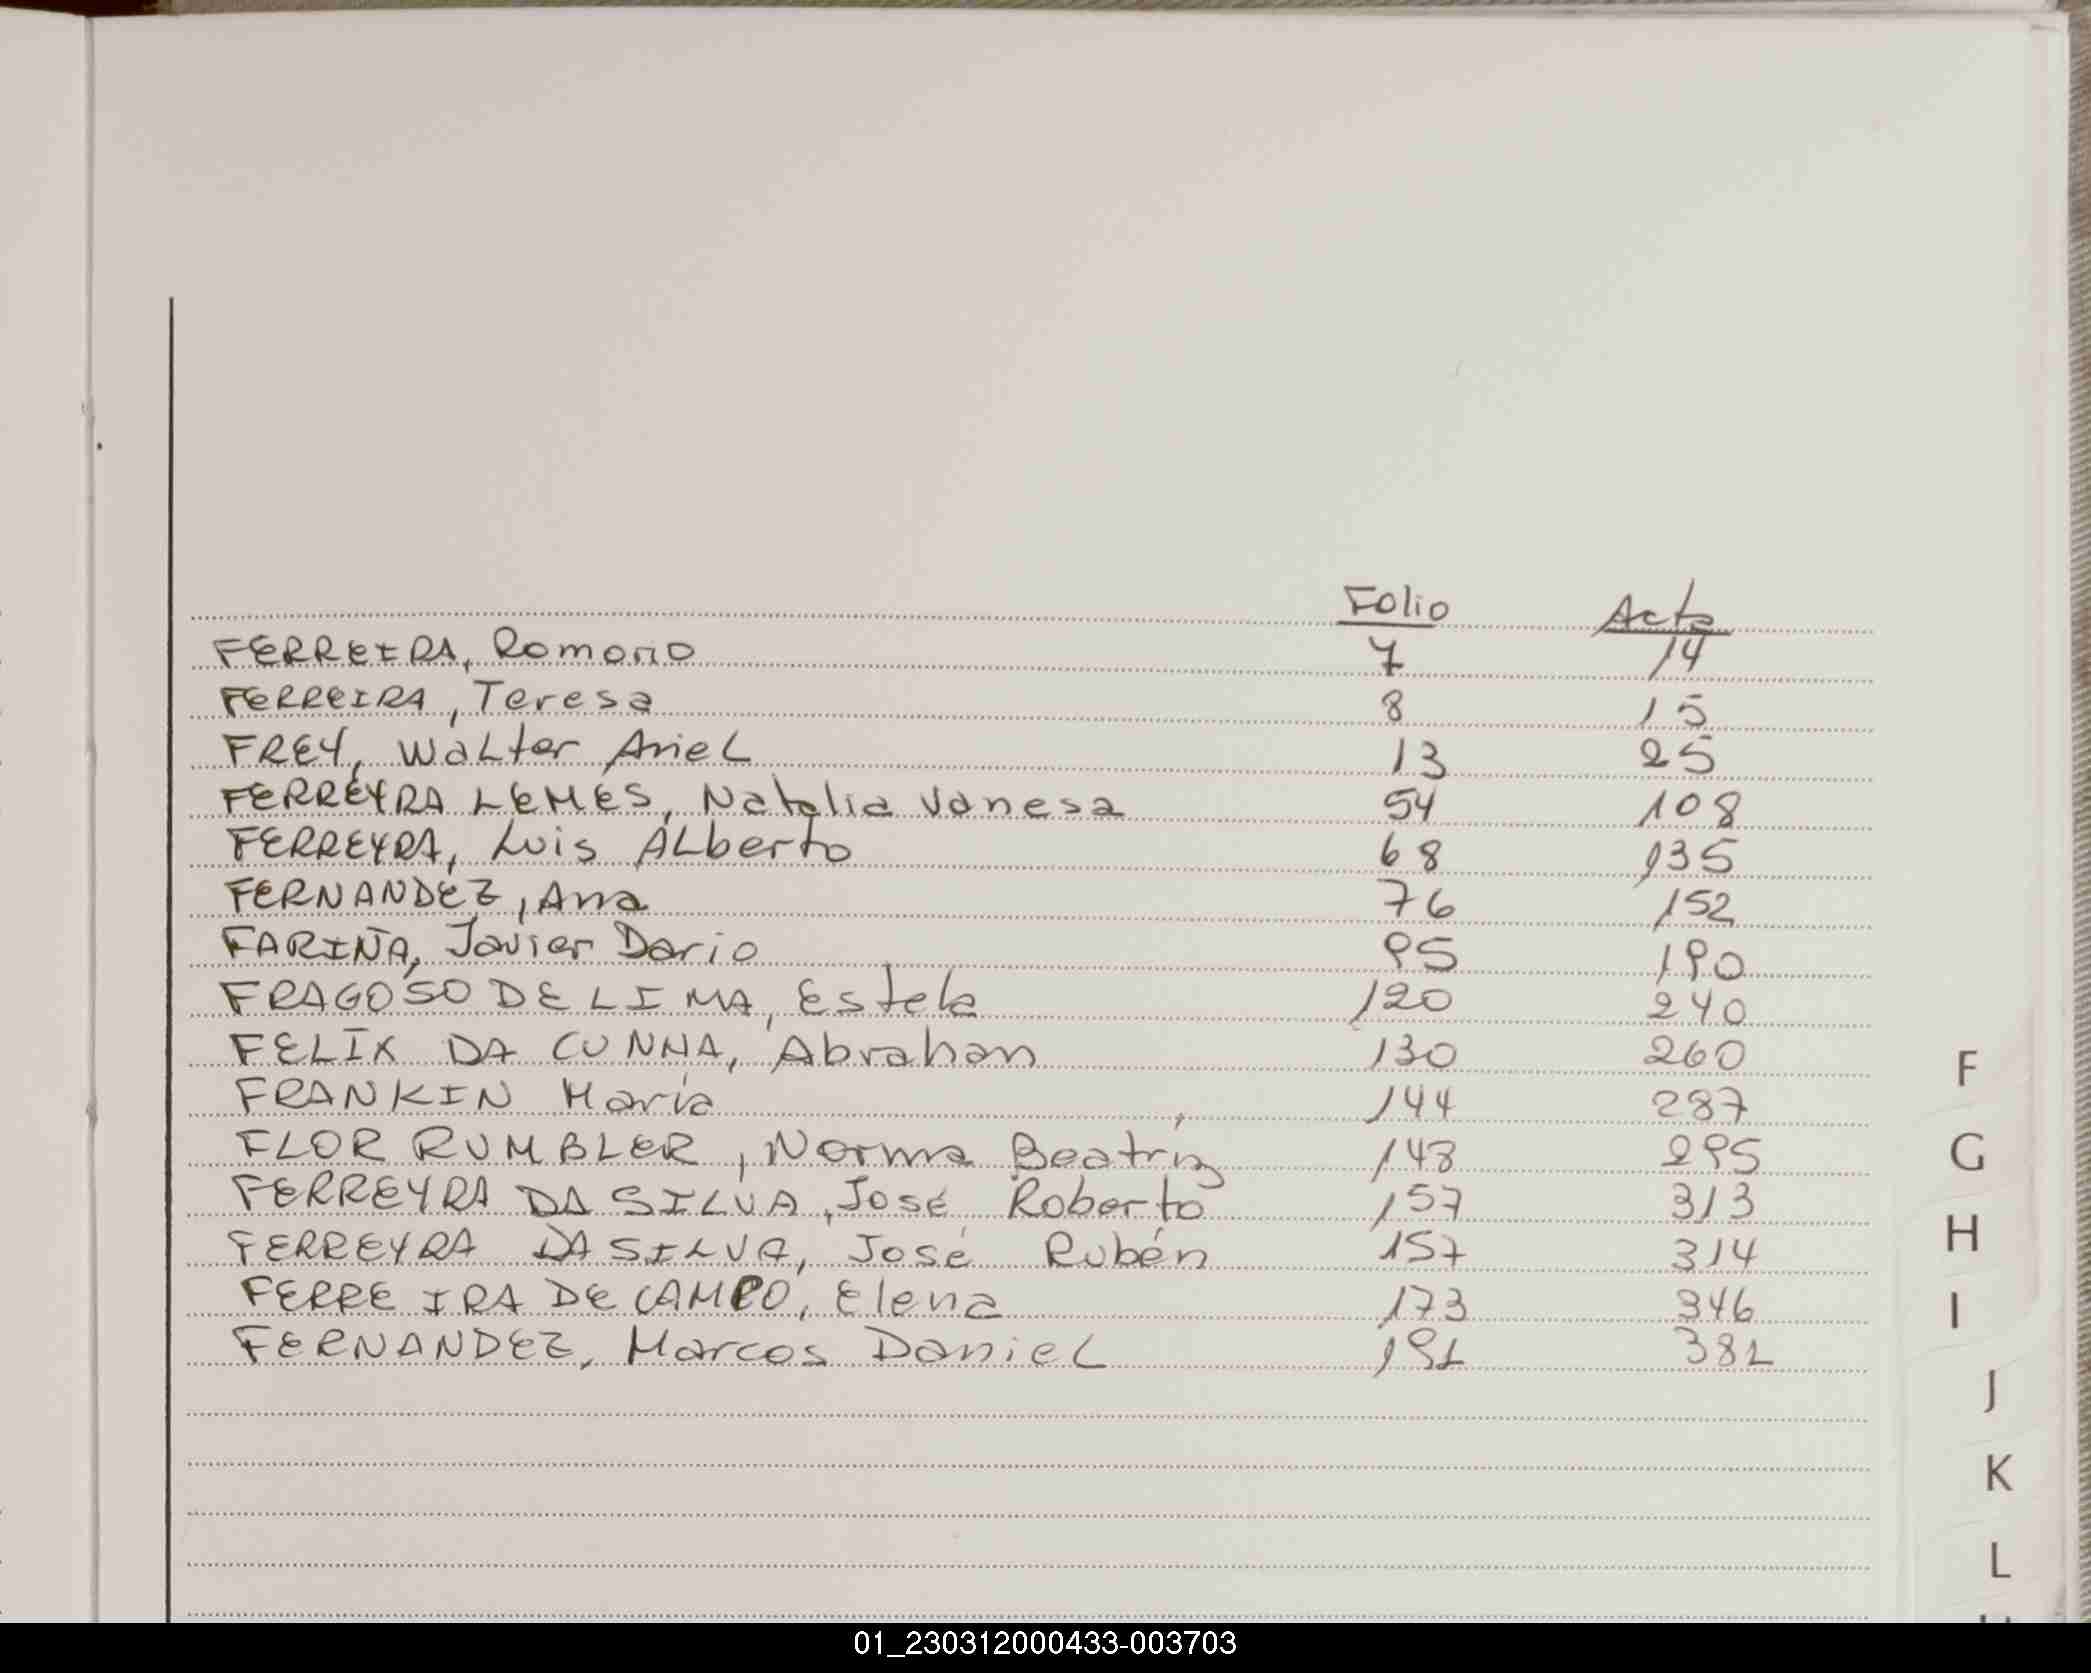 Folio Acta
FERREIRA, Romono 7 14
FERREIRA, Teresa 8 15
FREY, Walter Ariel 13 25
FERREYRA LEMES, Natalia Vanesa 54 108
FERREYRA, Luis Alberto 68 135
FERNANDEZ, Ana 76 152
FARIÑA, Javier Dario 95 190
FRAGOSO DE LIMA, Estela 120 240
FELIX DA CUNHA, Abrahan 130 260
FRANKIN María 144 287
FLOR RUMBLER, Norma Beatríz 148 295
FERREYRA DA SILVA, José Roberto 157 313
FERREYRA DA SILVA, José Rubén 157 314
FERREIRA DE CAMPO, Elena 173 346
FERNANDEZ, Marcos Daniel 191 381
F
G
H
I
J
K
L
01_230312000433-003703